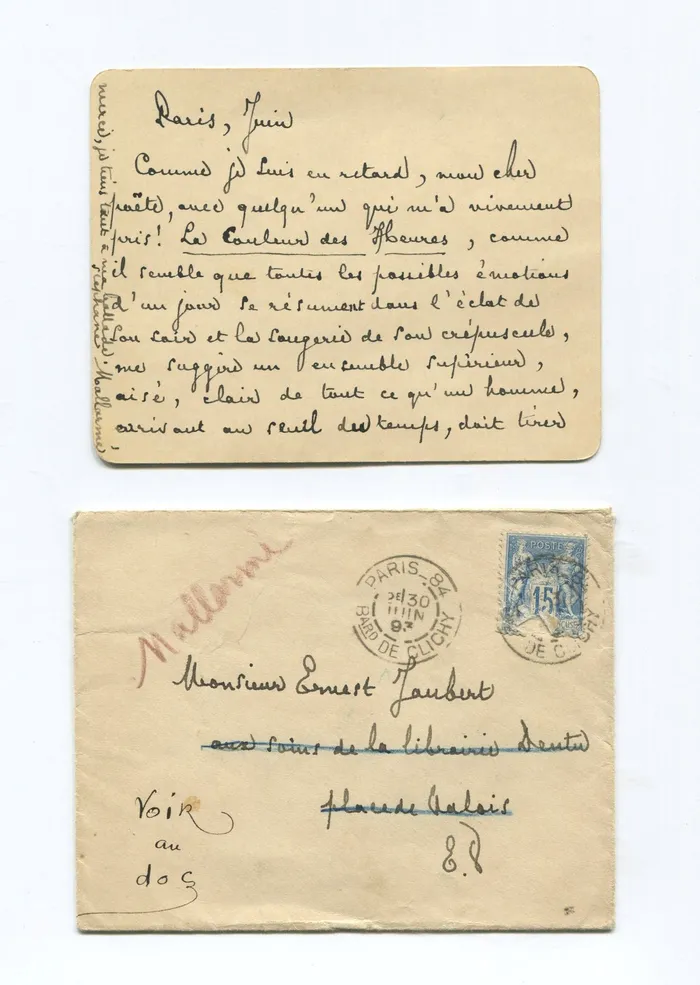 Paris, Juin
Comme je suis en retard, mon cher
poëte, avec quelqu'un qui m'a vivement
pris! La Couleur des Heures, comme
il semble que toutes les possibles émotions
d'un jour se résument dans l'éclat de
son soir et la songerie de son crépuscule,
me suggère un ensemble supérieur,
aisé, clair de tout ce qu'un homme,
arrivant au seuil des temps, doit tirer
merci, je tiens tant à ma ballade.
Stéphane Mallarmé
Mallarmé
PARIS_84
30
JUIN
93
BARD DE CLICHY
POSTE
15
PARIS
DE CLICHY
Monsieur Ernest Jaubert
aux soins de la librairie Dentu
place de Valois
E.V
Voir
au
dos